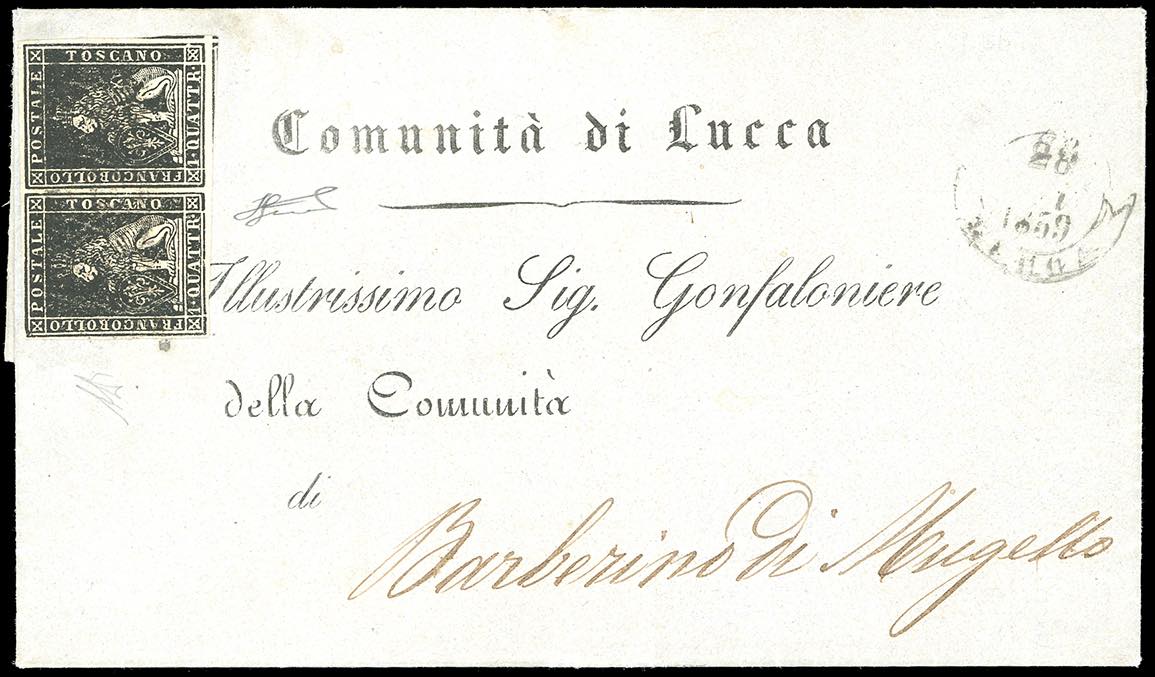 TOSCANO
POSTALE
1·QUATTR·
FRANCOBOLLO
TOSCANO
POSTALE
1·QUATTR·
FRANCOBOLLO
Comunità di Lucca
1859
Illustrissimo Sig. Gonfaloniere
della Comunità
di
Barberino di Mugello